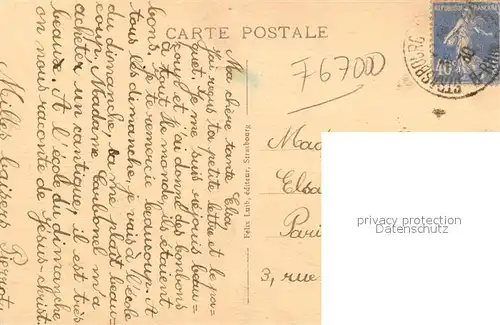 CARTE POSTALE
F67000
REPUBLIQUE FRANÇAISE
STRASBOURG
Ma chère tante Elsa
j'ai reçu ta petite lettre et le pa-
quet. Je me suis réjouis beau-
coup et j'ai donné des bonbons
à tout le monde, ils étaient
bons. Je te remercie beaucoup. A
tous les dimanche, je vais à l'école
du dimanche, ça me plaît beau-
coup. Madame Caubonel m'a
acheter un cantique, il est très
beaux. A l'école du dimanche
on nous raconte de Jésus-Christ.
Milles baisers Pierrot
Felix Luib, éditeur, Strasbourg
Mad
Elsa
Paris
3, rue
privacy protection
Datenschutz